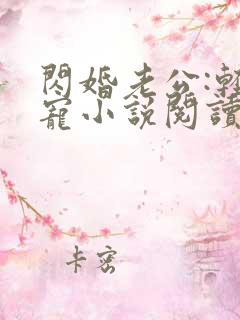 閃婚老公:漸
寵小說閱讀
卡密